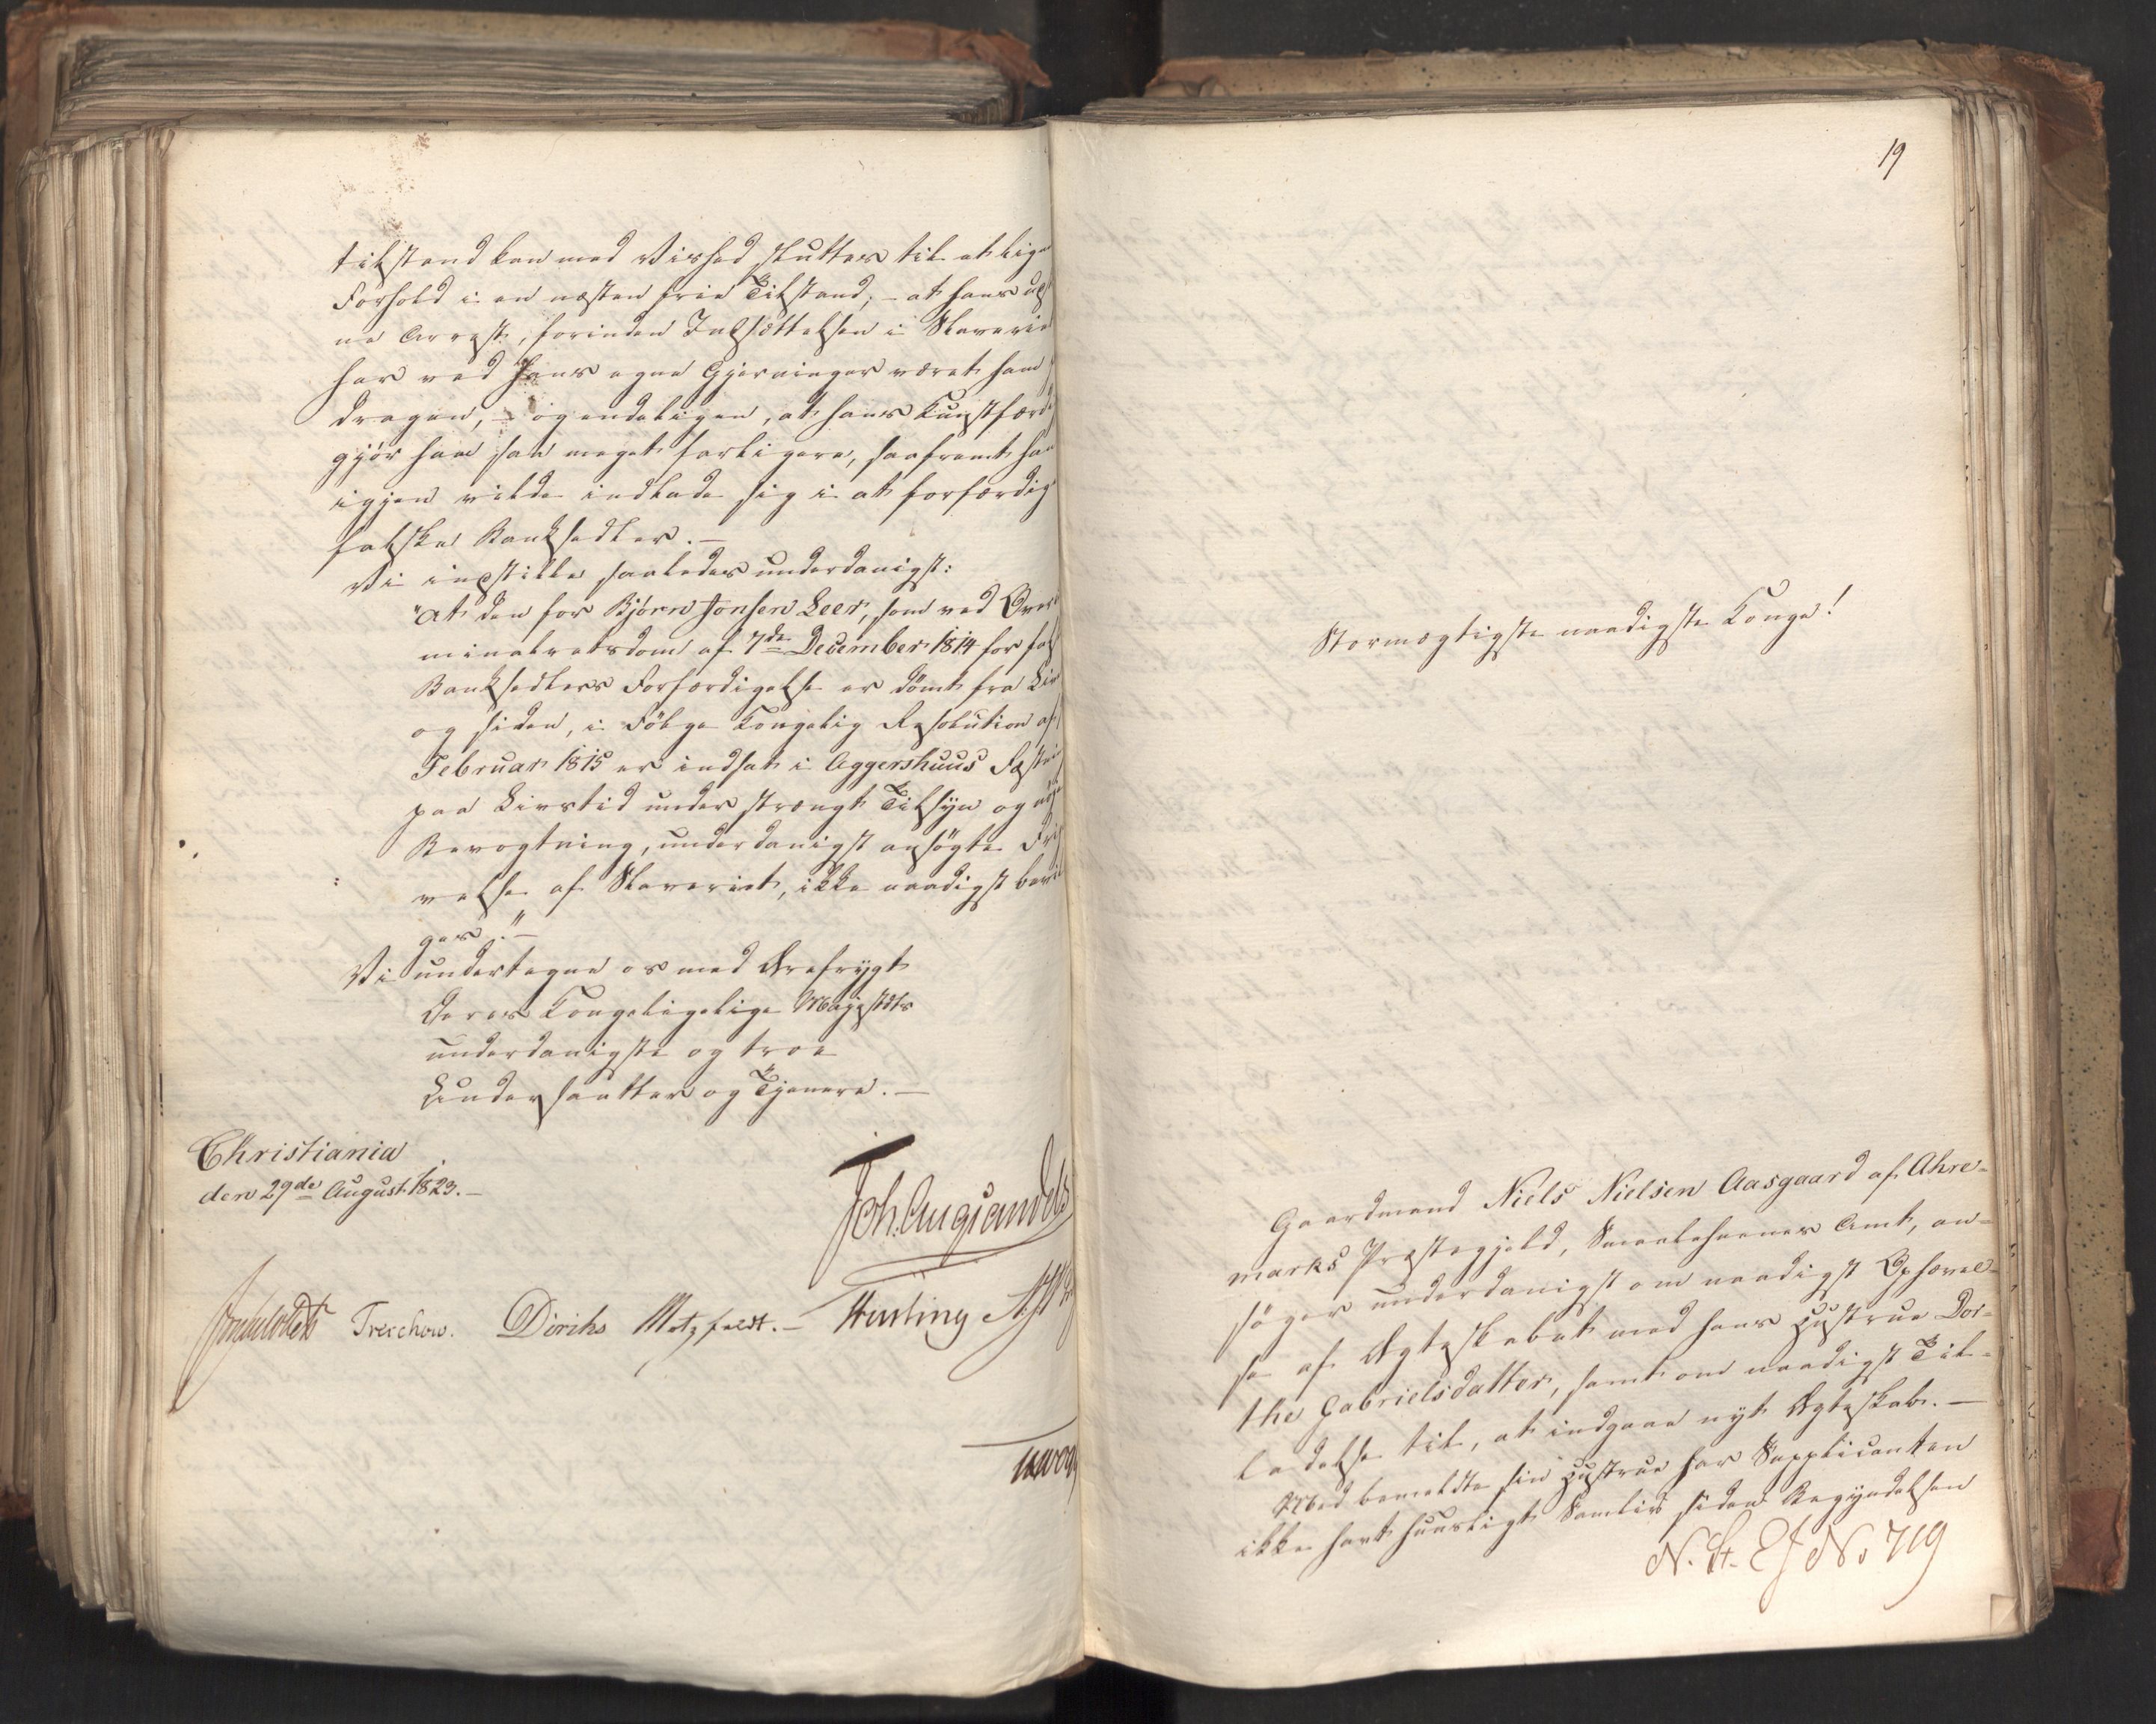 tilstand kan med Vished sluttes til et lig
Forhold i en næsten frie Tilstand; - at hans
ne Arrest, forinden Indsættelsen i Slaverie
har ved hans egne Gjerninger været ham
dragen, - og endeligen, at hans Kunstfærd
gjør ham saa meget farligere, saafremt han
igjen vilde indlade sig i at forfærdig
falske Banksedler. -
Vi indstille saaledes underdanigst:
"At den for Bjørn Jonsen Leer, som ved Over
minalretsdom af 7de December 1814 for fal
Banksedlers Forfærdigelse er dömt fra Liv
og siden, i Fölge Kongelig Resolution af
Februar 1815 er indsat i Aggershuus Fæstni
paa Livstid under strængt Tilsyn og nöje
Bevogtning, underdanigst ansögte Fri
velse af Slaveriet, ikke naadigst bevil
ges." -
Vi undertegne os med Ærefrygt
Deres Kongeligelige Majestæts
underdanigste og troe
Undersaatter og Tjenere. -
Christiania
den 29de August 1823. -
Joh. Aug. Sandels
Treschow. Diriks Motzfeldt. -
19
Stormægtigste naadigste Konge!
Gaardmand Niels Nielsen Aasgaard af Ahre-
marks Præstegjeld, Smaalehnenes Amt, an-
söger underdanigst om naadigst Ophævel-
se af Ægteskabet med hans Hustrue Dor-
the Gabrielsdatter, samt om naadigst Til-
ladelse til, at indgaae nyt Ægteskab. -
Med bemeldte sin Hustrue har Supplicanten
ikke havt huusligt Samliv siden Begyndelsen
N. St. E J No 719